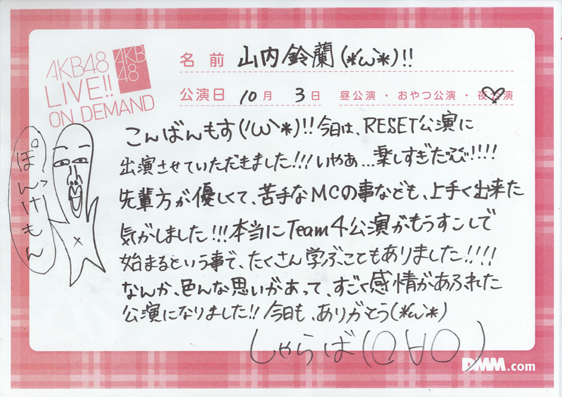 AKB48
LIVE!!
ON DEMAND
AKB
48
名前 山内鈴蘭(*'ω'*)!!
公演日 10月 3日 昼公演・おやつ公演・夜公演
こんばんもす('ω'*)!!今日は、RESET公演に
出演させていただきました!!!いやぁ...楽しすぎたっス!!!!
先輩方が優しくて、苦手なMCの事なども、上手く出来た
気がしました!!!本当にTeam4公演がもうすこしで
始まるという事で、たくさん学ぶこともありました!!!!
なんか、色んな思いがあって、すごく感情があふれた
公演になりました!!今日も、ありがとう(*'ω'*)
しゃらば(O∀O)
ぽんけもん
DMM.com